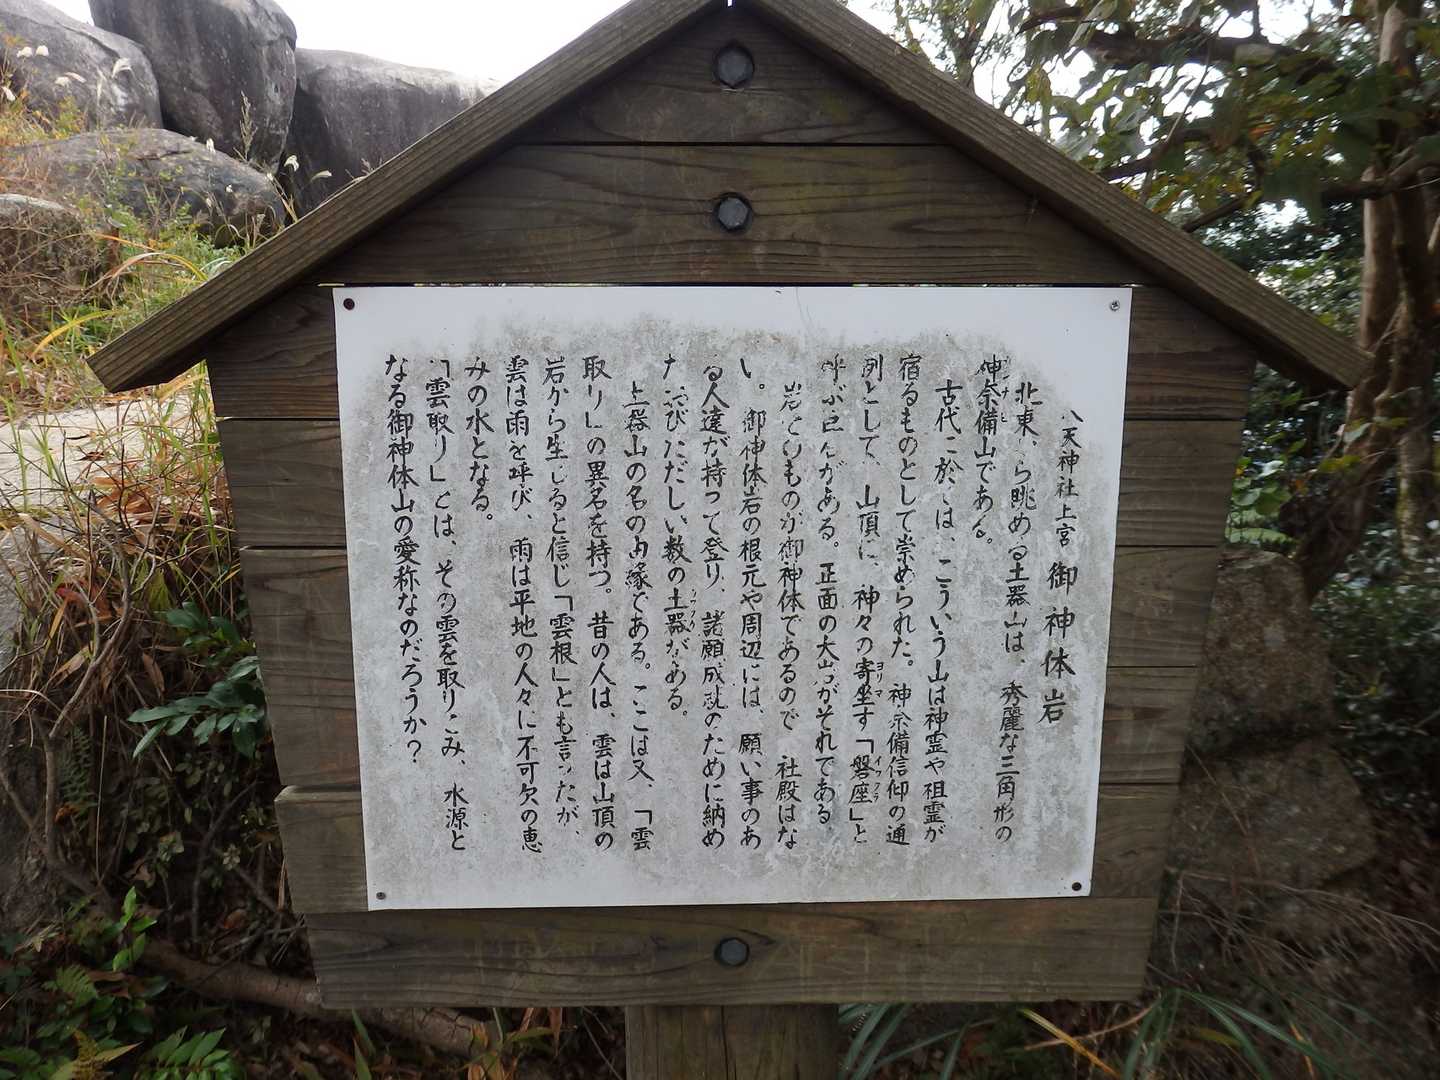 八天神社上宮 御神体岩
北東から眺める土器山は、秀麗な三角形の
神奈備山である。
古代に於ては、こういう山は神霊や祖霊が
宿るものとして崇められた。神奈備信仰の通
例として、山頂に、神々の寄坐す「磐座」と
呼ぶ巨石がある。正面の大岩がそれである
岩そのものが御神体であるので 社殿はな
い。御神体岩の根元や周辺には、願い事のあ
る人達が持って登り、諸願成就のために納め
たおびただしい数の土器がある。
土器山の名の由縁である。ここは又、「雲
取り」の異名を持つ。昔の人は、雲は山頂の
岩から生じると信じ「雲根」とも言ったが、
雲は雨を呼び、雨は平地の人々に不可欠の恵
みの水となる。
「雲取り」とは、その雲を取りこみ、水源と
なる御神体山の愛称なのだろうか？